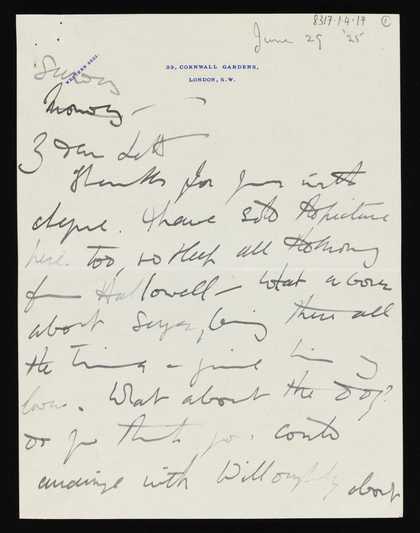 8317.1.4.19 1
June 29 '25
WESTERN 2501.
33, CORNWALL GARDENS,
LONDON, S.W.
Monday
dear Lett
Thanks for your with
cheque. I have sold the picture
here too, so keep all the money
from Hallowell - What a bore
about being there all
the time - give him my
love. What about the Dog?
do you think you could
arrange with Willoughby about